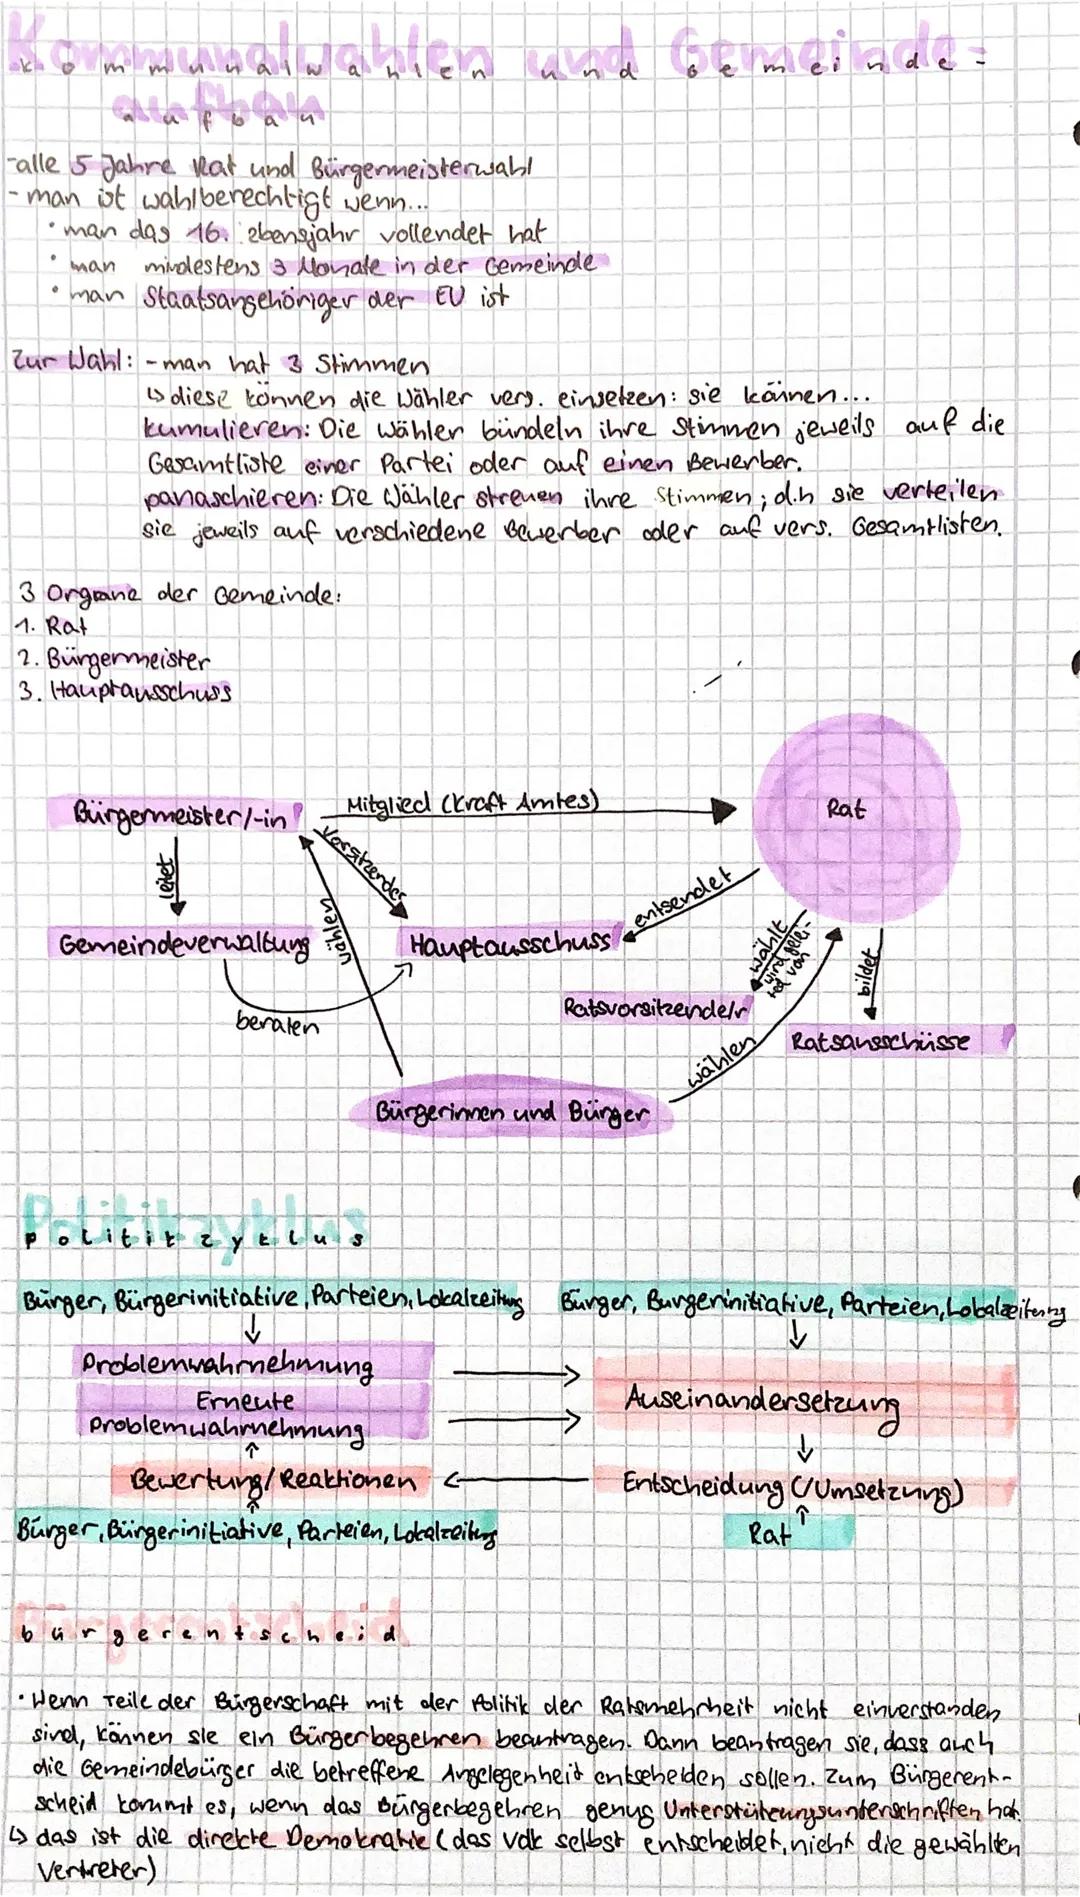 Kommunalwahlen und Gemeinde=
aufbau
-alle 5 Jahre Rat und Bürgermeisterwahl
-man ist wahlberechtigt wenn...
•man das 16. ebensjahr vollendet hat
•man mindestens 3 Monate in der Gemeinde
•man Staatsangehöriger der EU ist
Zur Wahl: -man hat 3 Stimmen
↳diese können die Wähler vers. einsetzen: sie können...
kumulieren: Die Wähler bündeln ihre Stimmen jeweils auf die
Gesamtliste einer Partei oder auf einen Bewerber.
panaschieren: Die Wähler streuen ihre Stimmen; d.h sie verteilen
sie jeweils auf verschiedene Bewerber oder auf vers. Gesamtlisten.
3 Organe der Gemeinde:
1. Rat
2. Bürgermeister
3. Hauptausschuss
Bürgermeister/-in
Mitglied (Kraft Amtes)
Rat
leitet
Vorsitzender
wählen
entsendet
Gemeindeverwaltung
Hauptausschuss
wählt
wird gelei-
tet von
bildet
beraten
Ratsvorsitzende/r
Ratsausschüsse
wählen
Bürgerinnen und Bürger
Politikzyklus
Bürger, Bürgerinitiative, Parteien, Lokalzeitung
Bürger, Bürgerinitiative, Parteien, Lokalzeitung
Problemwahrnehmung
Erneute
Problemwahrnehmung
Auseinandersetzung
Bewertung/Reaktionen
Entscheidung (/Umsetzung)
Bürger, Bürgerinitiative, Parteien, Lokalzeitung
Rat
bürgerentscheid
•Wenn Teile der Bürgerschaft mit der Politik der Ratsmehrheit nicht einverstanden
sind, können sie ein Bürgerbegehren beantragen. Dann beantragen sie, dass auch
die Gemeindebürger die betreffene Angelegenheit entscheiden sollen. Zum Bürgerent-
scheid kommt es, wenn das Bürgerbegehren genug Unterstützungsunterschriften hat.
↳ das ist die direkte Demokratie (das Volk selbst entscheidet, nicht die gewählten
Vertreter)